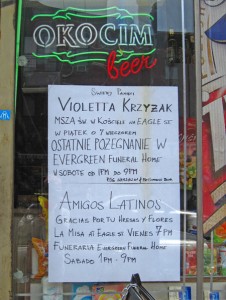 OKOCIM
beer
ŚWIĘTEJ PAMIĘCI
VIOLETTA KRZYŻAK
MSZA ŚW W KOŚCIELE NA EAGLE ST.
W PIĄTEK O 7 WIECZOREM
OSTATNIE POŻEGNANIE W
EVERGREEN FUNERAL HOME
W SOBOTĘ OD 1PM DO 9PM
AMIGOS LATINOS
GRACIAS POR TU HRESOS Y FLORES
LA MISA AT EAGLE ST VIENES 7PM
FUNERARIA EVERGREEN FUNERAL HOME
SABADO 1PM - 9PM